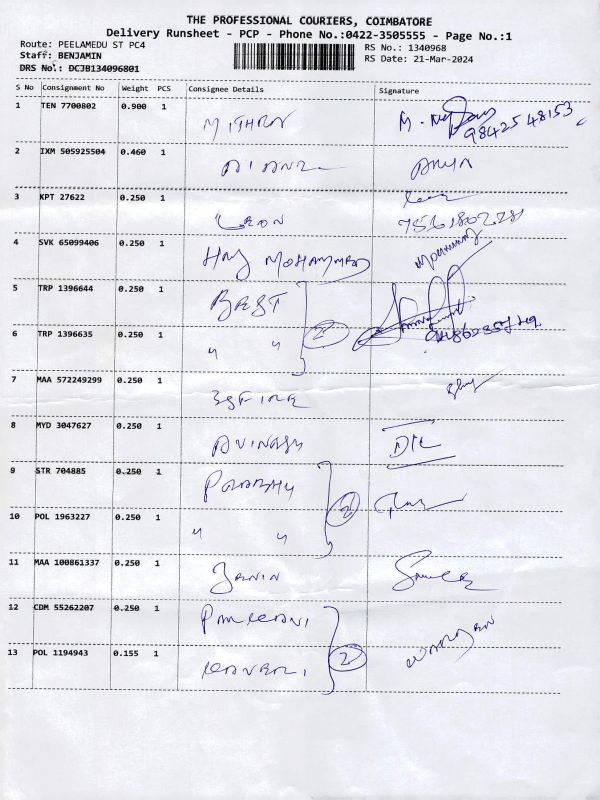 THE PROFESSIONAL COURIERS, COIMBATORE
Delivery Runsheet - PCP - Phone No.:0422-3505555 - Page No.:1
Route: PEELAMEDU ST PC4
RS No.: 1340968
Staff: BENJAMIN
RS Date: 21-Mar-2024
DRS No.: DCJB134096801
S No Consignment No Weight PCS Consignee Details Signature
1 TEN 7700802 0.900 1 MITHRN
98425 48153
2 IXM 505925504 0.460 1
3 KPT 27622 0.250 1 LEON
4 SVK 65099406 0.250 1 MOHAMMED
5 TRP 1396644 0.250 1 BEST
2
6 TRP 1396635 0.250 1 " "
7 MAA 572249299 0.250 1
8 MYD 3047627 0.250 1 AVINASH
9 STR 704885 0.250 1 PRABHU
2
10 POL 1963227 0.250 1 " "
11 MAA 100861337 0.250 1
12 CDM 55262207 0.250 1
2
13 POL 1194943 0.155 1